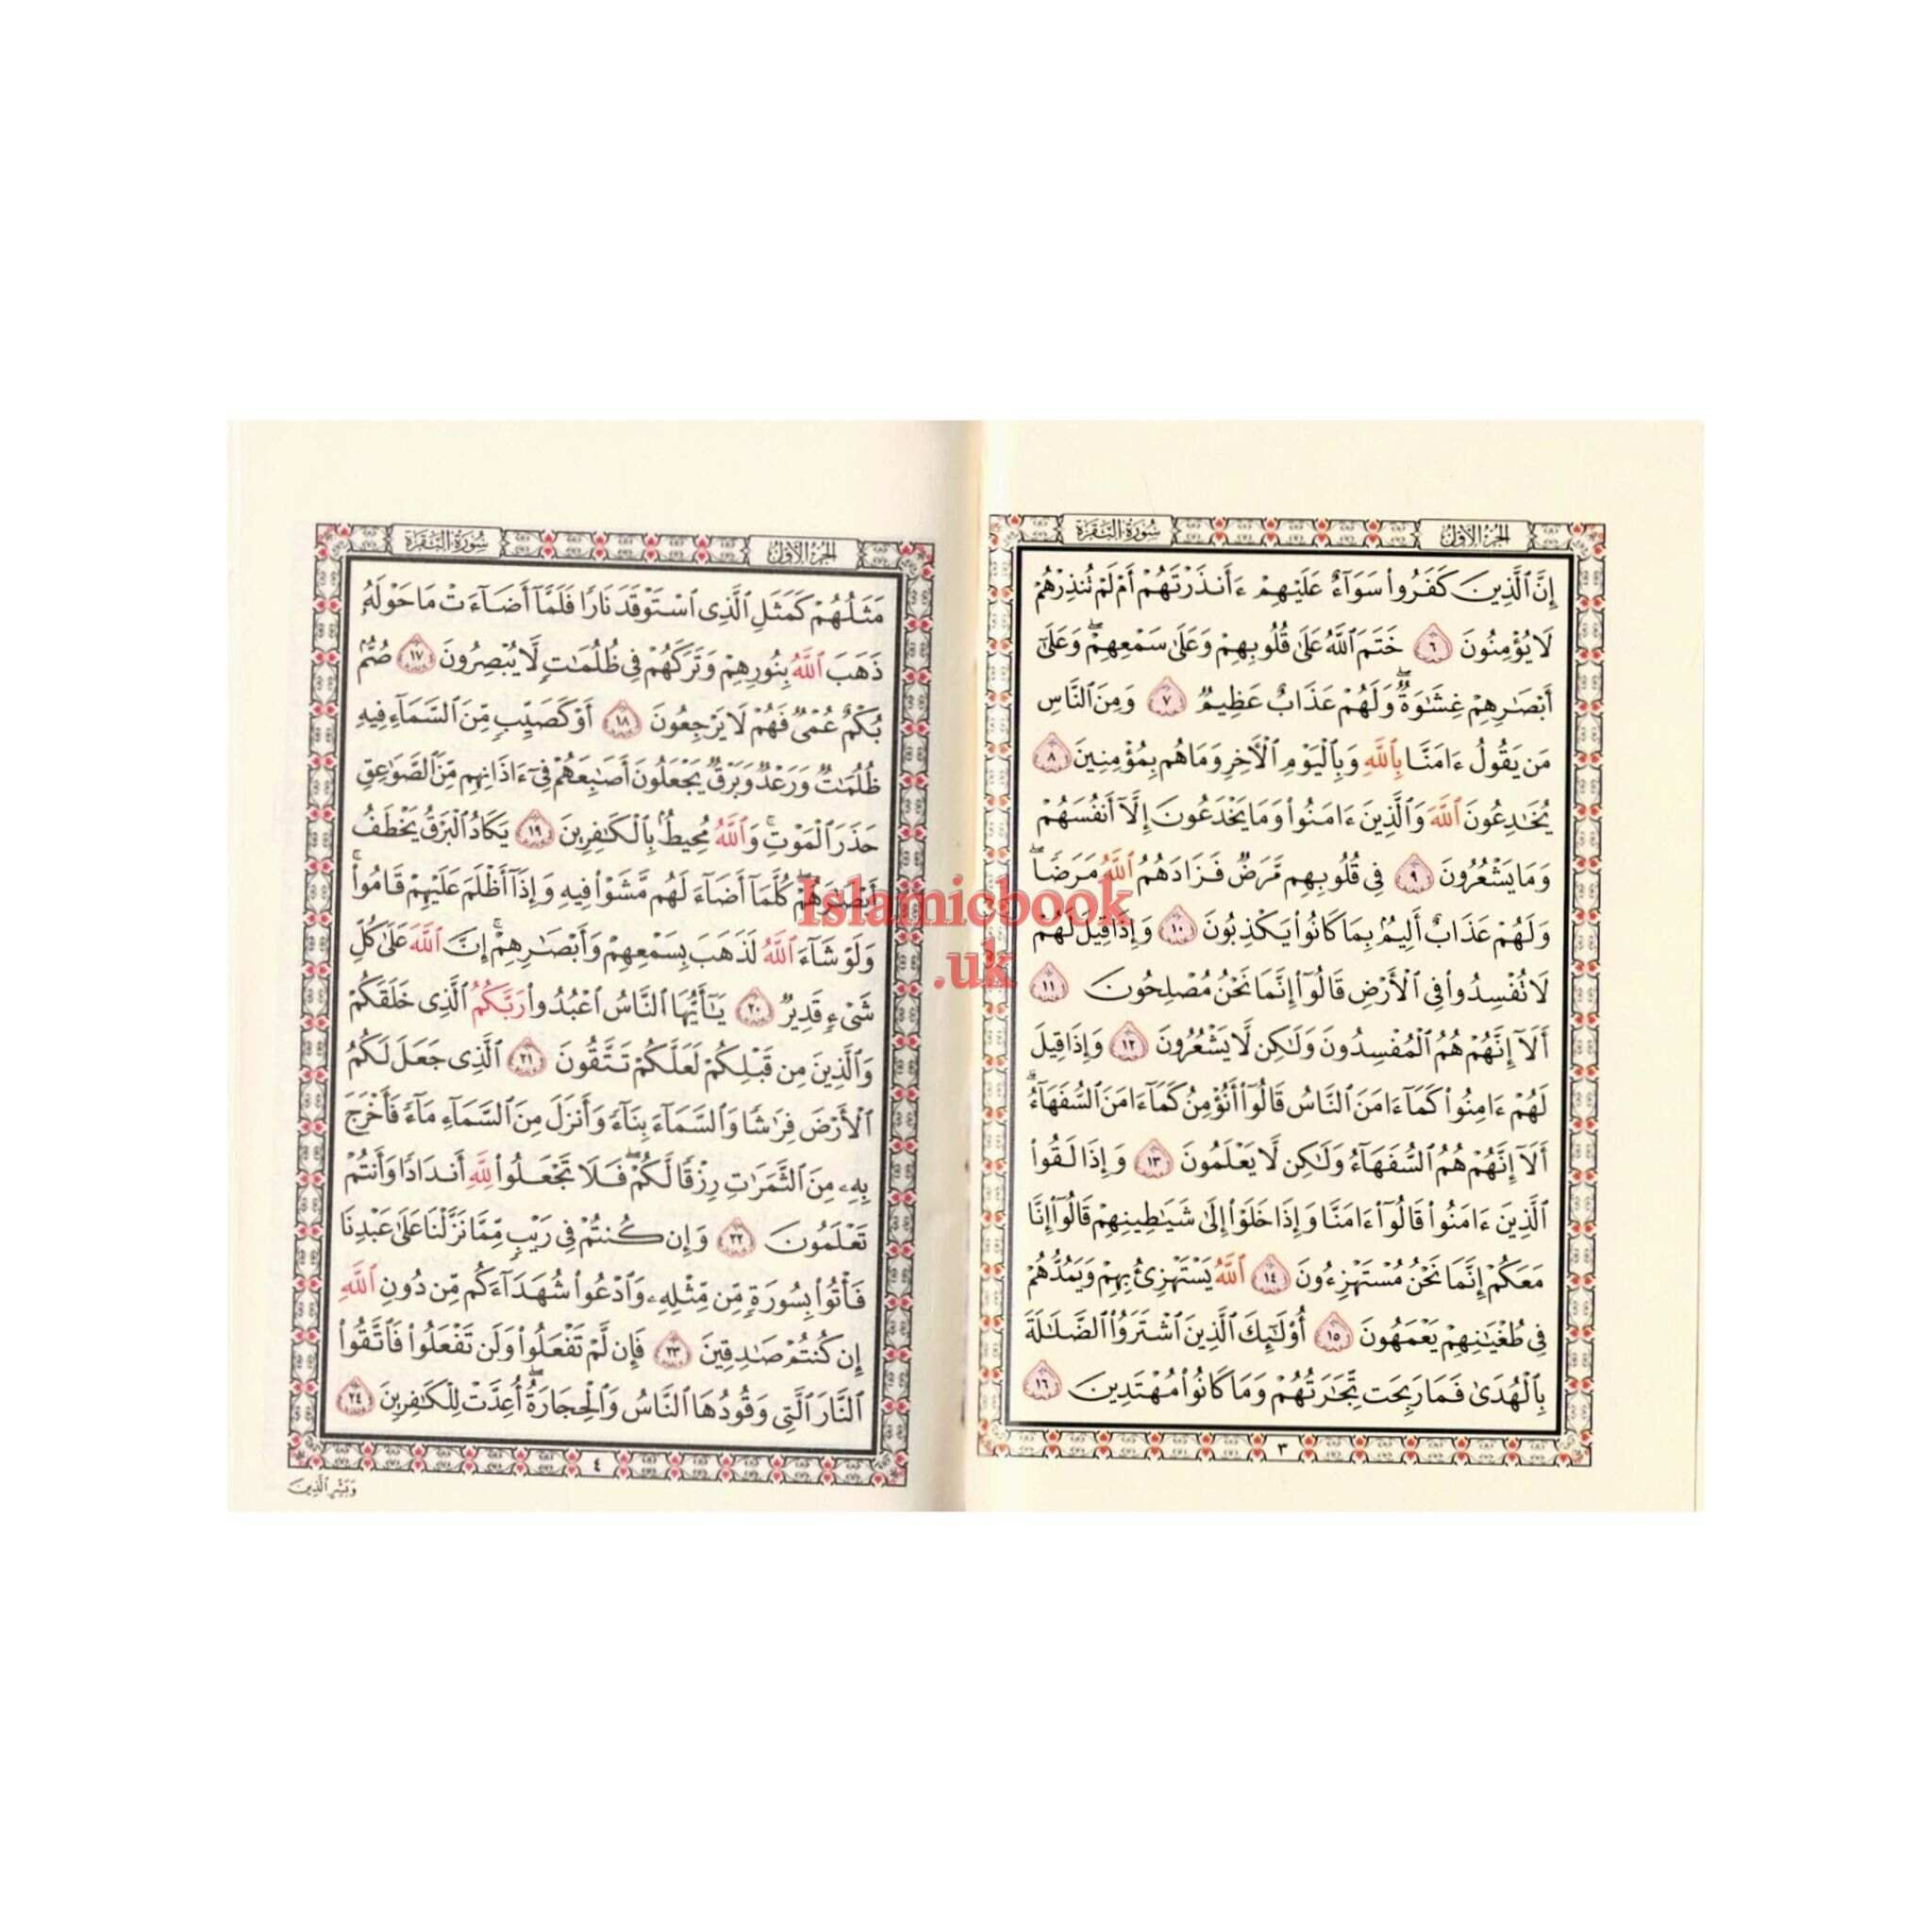 الجزء الأول
سورة البقرة
إِنَّ ٱلَّذِينَ كَفَرُوا۟ سَوَآءٌ عَلَيْهِمْ ءَأَنذَرْتَهُمْ أَمْ لَمْ تُنذِرْهُمْ
لَا يُؤْمِنُونَ ٦ خَتَمَ ٱللَّهُ عَلَىٰ قُلُوبِهِمْ وَعَلَىٰ سَمْعِهِمْ ۖ وَعَلَىٰٓ
أَبْصَـٰرِهِمْ غِشَـٰوَةٌ ۖ وَلَهُمْ عَذَابٌ عَظِيمٌ ٧ وَمِنَ ٱلنَّاسِ
مَن يَقُولُ ءَامَنَّا بِٱللَّهِ وَبِٱلْيَوْمِ ٱلْـَٔاخِرِ وَمَا هُم بِمُؤْمِنِينَ ٨
يُخَـٰدِعُونَ ٱللَّهَ وَٱلَّذِينَ ءَامَنُوا۟ وَمَا يَخْدَعُونَ إِلَّآ أَنفُسَهُمْ
وَمَا يَشْعُرُونَ ٩ فِى قُلُوبِهِم مَّرَضٌ فَزَادَهُمُ ٱللَّهُ مَرَضًا ۖ
وَلَهُمْ عَذَابٌ أَلِيمٌۢ بِمَا كَانُوا۟ يَكْذِبُونَ ١٠ وَإِذَا قِيلَ لَهُمْ
لَا تُفْسِدُوا۟ فِى ٱلْأَرْضِ قَالُوٓا۟ إِنَّمَا نَحْنُ مُصْلِحُونَ ١١
أَلَآ إِنَّهُمْ هُمُ ٱلْمُفْسِدُونَ وَلَـٰكِن لَّا يَشْعُرُونَ ١٢ وَإِذَا قِيلَ
لَهُمْ ءَامِنُوا۟ كَمَآ ءَامَنَ ٱلنَّاسُ قَالُوٓا۟ أَنُؤْمِنُ كَمَآ ءَامَنَ ٱلسُّفَهَآءُ ۗ
أَلَآ إِنَّهُمْ هُمُ ٱلسُّفَهَآءُ وَلَـٰكِن لَّا يَعْلَمُونَ ١٣ وَإِذَا لَقُوا۟
ٱلَّذِينَ ءَامَنُوا۟ قَالُوٓا۟ ءَامَنَّا وَإِذَا خَلَوْا۟ إِلَىٰ شَيَـٰطِينِهِمْ قَالُوٓا۟ إِنَّا
مَعَكُمْ إِنَّمَا نَحْنُ مُسْتَهْزِءُونَ ١٤ ٱللَّهُ يَسْتَهْزِئُ بِهِمْ وَيَمُدُّهُمْ
فِى طُغْيَـٰنِهِمْ يَعْمَهُونَ ١٥ أُو۟لَـٰٓئِكَ ٱلَّذِينَ ٱشْتَرَوُا۟ ٱلضَّلَـٰلَةَ
بِٱلْهُدَىٰ فَمَا رَبِحَت تِّجَـٰرَتُهُمْ وَمَا كَانُوا۟ مُهْتَدِينَ ١٦
٣
الجزء الأول
سورة البقرة
مَثَلُهُمْ كَمَثَلِ ٱلَّذِى ٱسْتَوْقَدَ نَارًا فَلَمَّآ أَضَآءَتْ مَا حَوْلَهُۥ
ذَهَبَ ٱللَّهُ بِنُورِهِمْ وَتَرَكَهُمْ فِى ظُلُمَـٰتٍ لَّا يُبْصِرُونَ ١٧ صُمٌّۢ
بُكْمٌ عُمْىٌ فَهُمْ لَا يَرْجِعُونَ ١٨ أَوْ كَصَيِّبٍ مِّنَ ٱلسَّمَآءِ فِيهِ
ظُلُمَـٰتٌ وَرَعْدٌ وَبَرْقٌ يَجْعَلُونَ أَصَـٰبِعَهُمْ فِىٓ ءَاذَانِهِم مِّنَ ٱلصَّوَٰعِقِ
حَذَرَ ٱلْمَوْتِ ۚ وَٱللَّهُ مُحِيطٌۢ بِٱلْكَـٰفِرِينَ ١٩ يَكَادُ ٱلْبَرْقُ يَخْطَفُ
أَبْصَـٰرَهُمْ ۖ كُلَّمَآ أَضَآءَ لَهُم مَّشَوْا۟ فِيهِ وَإِذَآ أَظْلَمَ عَلَيْهِمْ قَامُوا۟ ۚ
وَلَوْ شَآءَ ٱللَّهُ لَذَهَبَ بِسَمْعِهِمْ وَأَبْصَـٰرِهِمْ ۚ إِنَّ ٱللَّهَ عَلَىٰ كُلِّ
شَىْءٍ قَدِيرٌ ٢٠ يَـٰٓأَيُّهَا ٱلنَّاسُ ٱعْبُدُوا۟ رَبَّكُمُ ٱلَّذِى خَلَقَكُمْ
وَٱلَّذِينَ مِن قَبْلِكُمْ لَعَلَّكُمْ تَتَّقُونَ ٢١ ٱلَّذِى جَعَلَ لَكُمُ
ٱلْأَرْضَ فِرَٰشًا وَٱلسَّمَآءَ بِنَآءً وَأَنزَلَ مِنَ ٱلسَّمَآءِ مَآءً فَأَخْرَجَ
بِهِۦ مِنَ ٱلثَّمَرَٰتِ رِزْقًا لَّكُمْ ۖ فَلَا تَجْعَلُوا۟ لِلَّهِ أَندَادًا وَأَنتُمْ
تَعْلَمُونَ ٢٢ وَإِن كُنتُمْ فِى رَيْبٍ مِّمَّا نَزَّلْنَا عَلَىٰ عَبْدِنَا
فَأْتُوا۟ بِسُورَةٍ مِّن مِّثْلِهِۦ وَٱدْعُوا۟ شُهَدَآءَكُم مِّن دُونِ ٱللَّهِ
إِن كُنتُمْ صَـٰدِقِينَ ٢٣ فَإِن لَّمْ تَفْعَلُوا۟ وَلَن تَفْعَلُوا۟ فَٱتَّقُوا۟
ٱلنَّارَ ٱلَّتِى وَقُودُهَا ٱلنَّاسُ وَٱلْحِجَارَةُ ۖ أُعِدَّتْ لِلْكَـٰفِرِينَ ٢٤
٤
وَبَشِّرِ ٱلَّذِينَ
Islamicbook
.uk